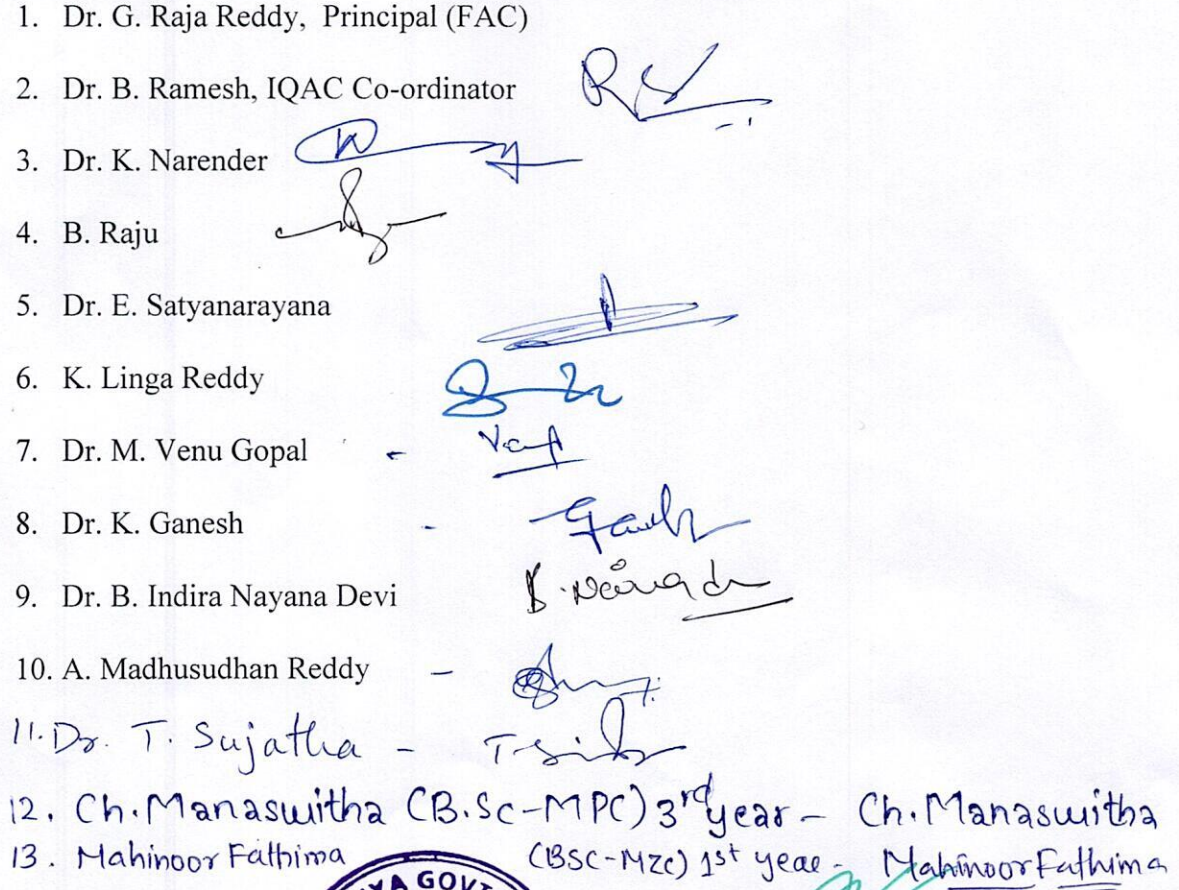 1. Dr. G. Raja Reddy, Principal (FAC)
2. Dr. B. Ramesh, IQAC Co-ordinator
3. Dr. K. Narender
4. B. Raju
5. Dr. E. Satyanarayana
6. K. Linga Reddy
7. Dr. M. Venu Gopal -
8. Dr. K. Ganesh -
9. Dr. B. Indira Nayana Devi
10. A. Madhusudhan Reddy -
11. Dr. T. Sujatha -
12. Ch. Manaswitha (B.Sc-MPC) 3rd year - Ch. Manaswitha
13. Mahinoor Fathima (BSC-MZC) 1st year - Mahinoor Fathima
GOVT